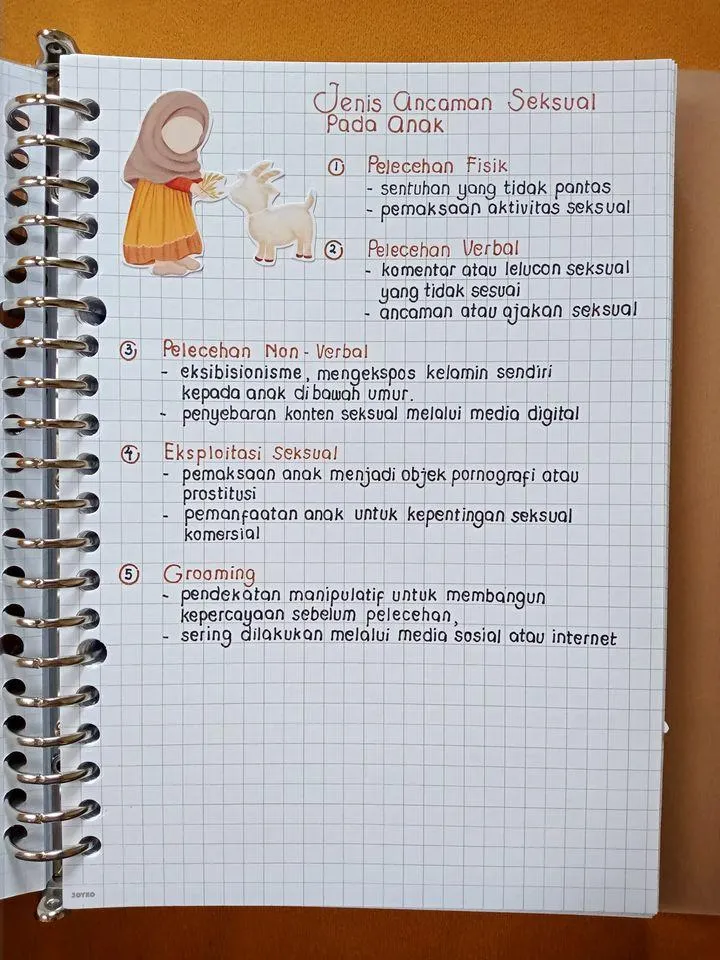 Jenis Ancaman Seksual
Pada Anak
1 Pelecehan Fisik
- sentuhan yang tidak pantas
- pemaksaan aktivitas seksual
2 Pelecehan Verbal
- komentar atau lelucon seksual
yang tidak sesuai
- ancaman atau ajakan seksual
3 Pelecehan Non-Verbal
- eksibisionisme, mengekspos kelamin sendiri
kepada anak dibawah umur.
- penyebaran konten seksual melalui media digital
4 Eksploitasi Seksual
- pemaksaan anak menjadi objek pornografi atau
prostitusi
- pemanfaatan anak untuk kepentingan seksual
komersial
5 Grooming
- pendekatan manipulatif untuk membangun
kepercayaan sebelum pelecehan,
- sering dilakukan melalui media sosial atau internet
JOYKO